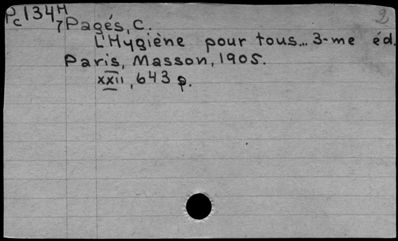 Pc134H
7Pagés, C.
L'Hygiène pour tous... 3-me éd.
Paris, Masson, 1905.
xxii, 643 p.